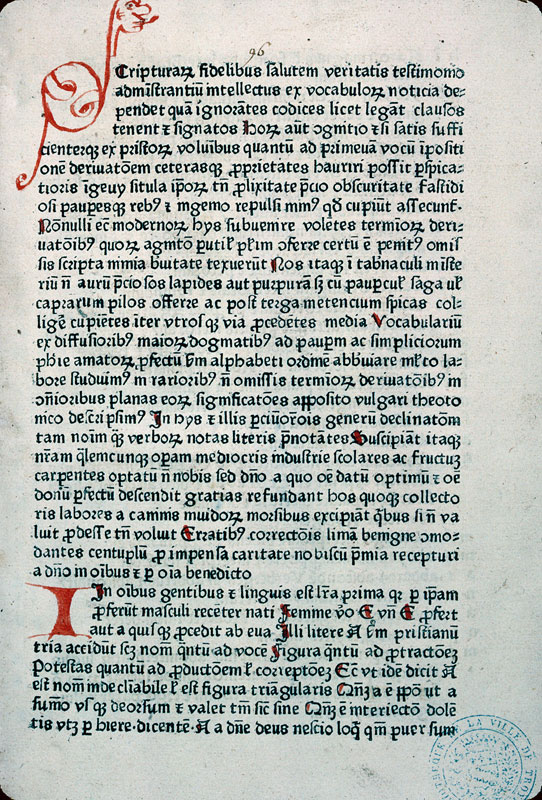 96
Scripturaꝝ fidelibus salutem veritatis testimonio
administrantiū intellectus ex vocabuloꝝ noticia de⸗
pendet quā ignorātes codices licet legāt clausos
tenent ⁊ signatos Hoꝝ aūt ꝯgnitio ⁊si satis suffi
cienterqꝫ ex priscoꝝ voluībus quantū ad primeuā vocū īpositi
onē deriuatoēm ceterasqꝫ ꝓprietates hauriri possit ꝑspica⸗
tioris īgeuy situla ip̄oꝝ tn̄ ꝓlixitate p̄cio obscuritate fastidi
osi pauꝑesqꝫ rebꝰ ⁊ ingenio repulsi minꝰ qd̄ cupiūt assecunt̄
Nōnulli ec̄ modernoꝝ hys subuenire volētes termīoꝝ deri⸗
uatōibꝰ quoꝝ agnitō ꝑutił pł̄im oferre certū ē penitꝰ omis
sis scripta nimia breuitate texuerūt Nos itaqꝫ ī tab̄naculi mīste
riū n̄ aurū p̄ciosos lapides aut purpurā sꝫ cū pauꝑcuł saga uł
caprarum pilos offerre ac post terga metencium spicas col⸗
ligē cupiētes īter vtrosqꝫ via ꝓcedētes media Vocabulariū
ex diffusioribꝰ maioꝝ dogmatibꝰ ad pauꝑm ac simpliciorum
ph̄ie amatoꝝ ꝓfectū s̄m alphabeti ordinē abb̄uiare mł̄to la⸗
bore studuimꝰ in rarioribꝰ n̄ omissis termioꝝ deriuatōibꝰ in
ōmioribus planas eoꝝ significatōes apposito vulgari theoto
nico descripsimꝰ In hys ⁊ illis ꝑciuoꝛois generū declinatōm
tam noīm qꝫ̄ verboꝝ notas literis p̄notātes Suscipiāt itaqꝫ
nr̄am q̄lemcunqꝫ oꝑam mediocris industrie scolares ac fructuꝫ
carpentes optatū n̄ nobis sed dn̄o a quo oē datū optimū ⁊ oē
donū ꝑfectū descendit gratias refundant hos quoqꝫ collecto
ris labores a caninis inuidoꝝ morsibus excipiāt q̄bus si n̄ va
luit ꝓdesse tn̄ voluit Erratibꝰ correctōis limā benigne ꝯmo⸗
dantes centuplū ꝓ impensa caritate nobiscū p̄mia recepturi
a dn̄o in oībus ⁊ ꝑ oīa benedicto
In oībus gentibus ⁊ linguis est lr̄a prima qꝛ ꝑ ip̄am
ꝓferūt masculi recēter nati Femine v̄o E vn̄ E ꝓfert
aut a quisqꝫ ꝓcedit ab eua Illi litere A s̄m priscianū
tria accidūt scꝫ nom̄ q̄ntū ad vocē Figura q̄ntū ad ꝓtractōeꝫ
Potestas quantū ad ꝓductōem ł correptōeꝫ Ec̄ vt idē dicit A
est nom̄ indeclīabile ł est figura triāgularis Qn̄ꝫ a ē p̄pō ut a
sumō vsqꝫ deorsum ⁊ valet tm̄ sic̄ sine Qn̄ꝫ ē interiectō dolē
tis vtꝫ ꝑ hiere.dicentē.A a dn̄e deus nescio loq̄ qm̄ puer sum
LA VILLE DE